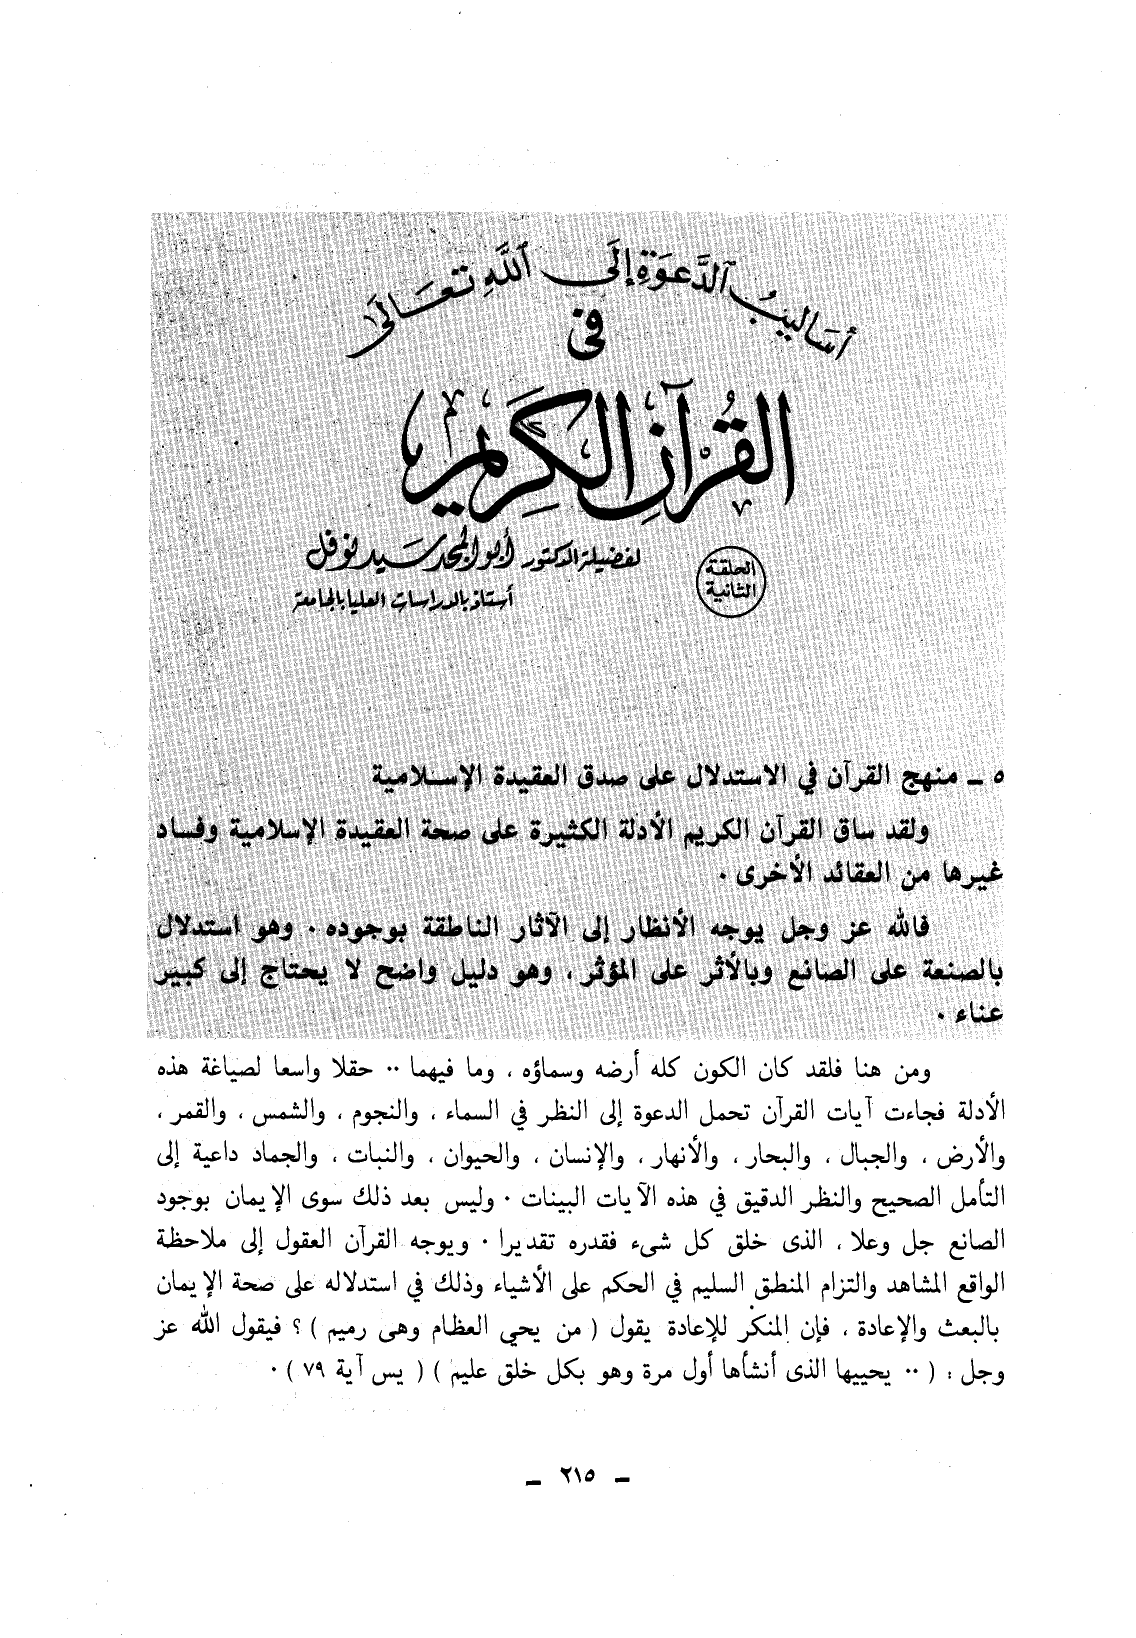 أساليبُ الدَّعوَةِ إلَى اللَّهِ تعَالَى
فى
القُرآنِ الكَرِيم
لفضيلة الدكتور أبو المجد سيد نوفل
الحلقة
الثانية
أستاذ بالدراسات العليا بالجامعة
٥ ـ منهج القرآن في الاستدلال على صدق العقيدة الإسـلامية
ولقد ساق القرآن الكريم الأدلة الكثيرة على صحة العقيدة الإسلامية وفساد
غيرها من العقائد الأخرى ٠
فالله عز وجل يوجه الأنظار إلى الآثار الناطقة بوجوده ٠ وهو استدلال
بالصنعة على الصانع وبالأثر على المؤثر ، وهو دليل واضح لا يحتاج إلى كبير
عناء ٠
ومن هنا فلقد كان الكون كله أرضه وسماؤه ، وما فيهما ٠٠ حقلا واسعا لصياغة هذه
الأدلة فجاءت آيات القرآن تحمل الدعوة إلى النظر في السماء ، والنجوم ، والشمس ، والقمر ،
والأرض ، والجبال ، والبحار ، والأنهار ، والإنسان ، والحيوان ، والنبات ، والجماد داعية إلى
التأمل الصحيح والنظر الدقيق في هذه الآيات البينات ٠ وليس بعد ذلك سوى الإيمان بوجود
الصانع جل وعلا ، الذى خلق كل شىء فقدره تقديرا ٠ ويوجه القرآن العقول إلى ملاحظة
الواقع المشاهد والتزام المنطق السليم في الحكم على الأشياء وذلك في استدلاله على صحة الإيمان
بالبعث والإعادة ، فإن المنكر للإعادة يقول ( من يحي العظام وهى رميم ) ؟ فيقول الله عز
وجل : ( ٠٠ يحييها الذى أنشأها أول مرة وهو بكل خلق عليم ) ( يس آية ٧٩ ) ٠
ـ ٢١٥ ـ